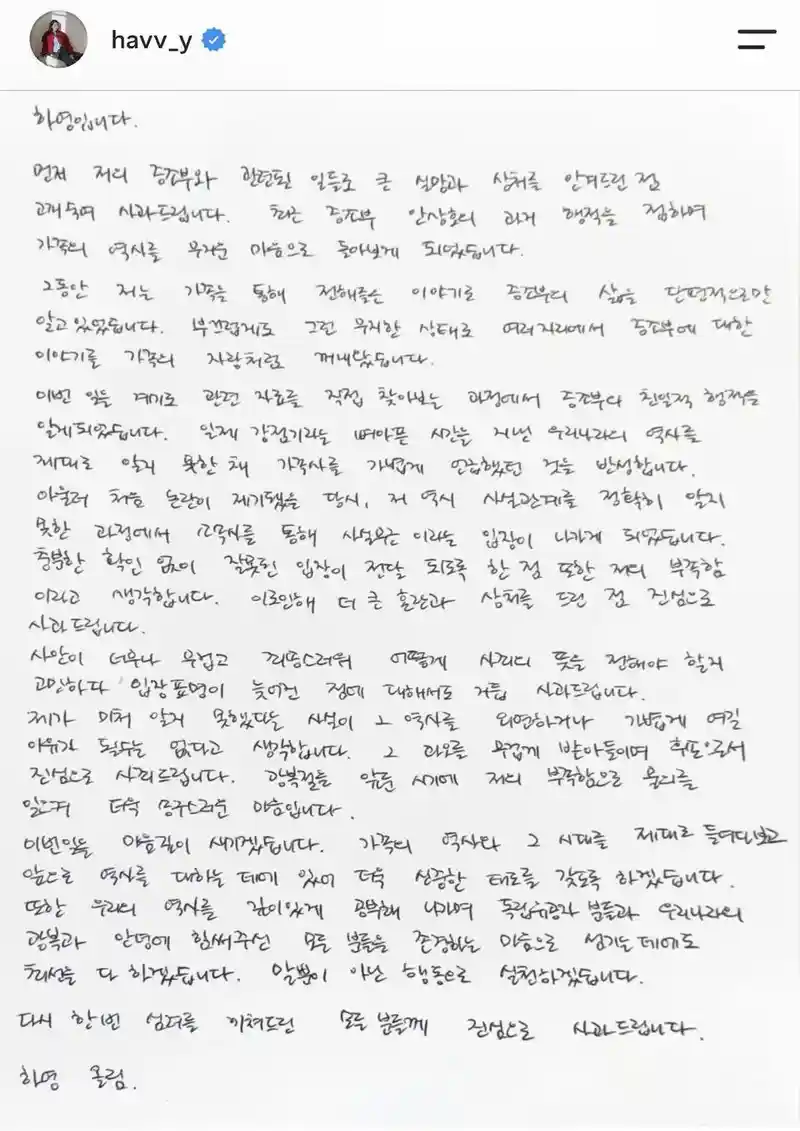 havv_y
하영입니다.
먼저 저의 증조부와 관련된 일들로 큰 실망과 상처를 안겨드린 점
고개숙여 사과드립니다. 최근 증조부 안상호의 과거 행적을 접하며
가족의 역사를 무거운 마음으로 돌아보게 되었습니다.
그동안 저는 가족을 통해 전해들은 이야기로 증조부의 삶을 단편적으로만
알고있었습니다. 부끄럽게도 그런 무지한 상태로 여러자리에서 증조부에 대한
이야기를 가족의 자랑처럼 꺼내왔습니다.
이번 일을 계기로 관련 자료를 직접 찾아보는 과정에서 증조부의 친일적 행적을
알게되었습니다. 일제 강점기라는 뼈아픈 시간을 지낸 우리나라의 역사를
제대로 알지 못한 채 가족사를 가볍게 언급했던 것을 반성합니다.
아울러 처음 논란이 제기됐을 당시, 저 역시 사실관계를 정확히 알지
못한 과정에서 소속사를 통해 사실무근 이라는 입장이 나가게 되었습니다.
충분한 확인 없이 잘못된 입장이 전달 되도록 한 점 또한 저의 부족함
이라고 생각합니다. 이로인해 더 큰 혼란과 상처를 드린 점 진심으로
사과드립니다.
사안이 너무나 무겁고 죄송스러워 어떻게 사죄의 뜻을 전해야 할지
고민하다 입장표명이 늦어진 점에 대해서도 거듭 사과드립니다.
제가 미처 알지 못했다는 사실이 그 역사를 외면하거나 가볍게 여길
이유가 될수는 없다고 생각합니다. 그 과오를 무겁게 받아들이며 후손으로서
진심으로 사죄드립니다. 광복절을 앞둔 시기에 저의 부족함으로 물의를
일으켜 더욱 송구스러운 마음입니다.
이번일을 마음깊이 새기겠습니다. 가족의 역사와 그 시대를 제대로 들여다보고
앞으로 역사를 대하는 데에 있어 더욱 신중한 태도를 갖도록 하겠습니다.
또한 우리의 역사를 깊이있게 공부해 나가며 독립유공자 분들과 우리나라의
광복과 안녕에 힘써주신 모든 분들을 존경하는 마음으로 섬기는 데에도
최선을 다 하겠습니다. 말뿐이 아닌 행동으로 실천하겠습니다.
다시 한번 심려를 끼쳐드린 모든 분들께 진심으로 사과드립니다.
하영 올림.